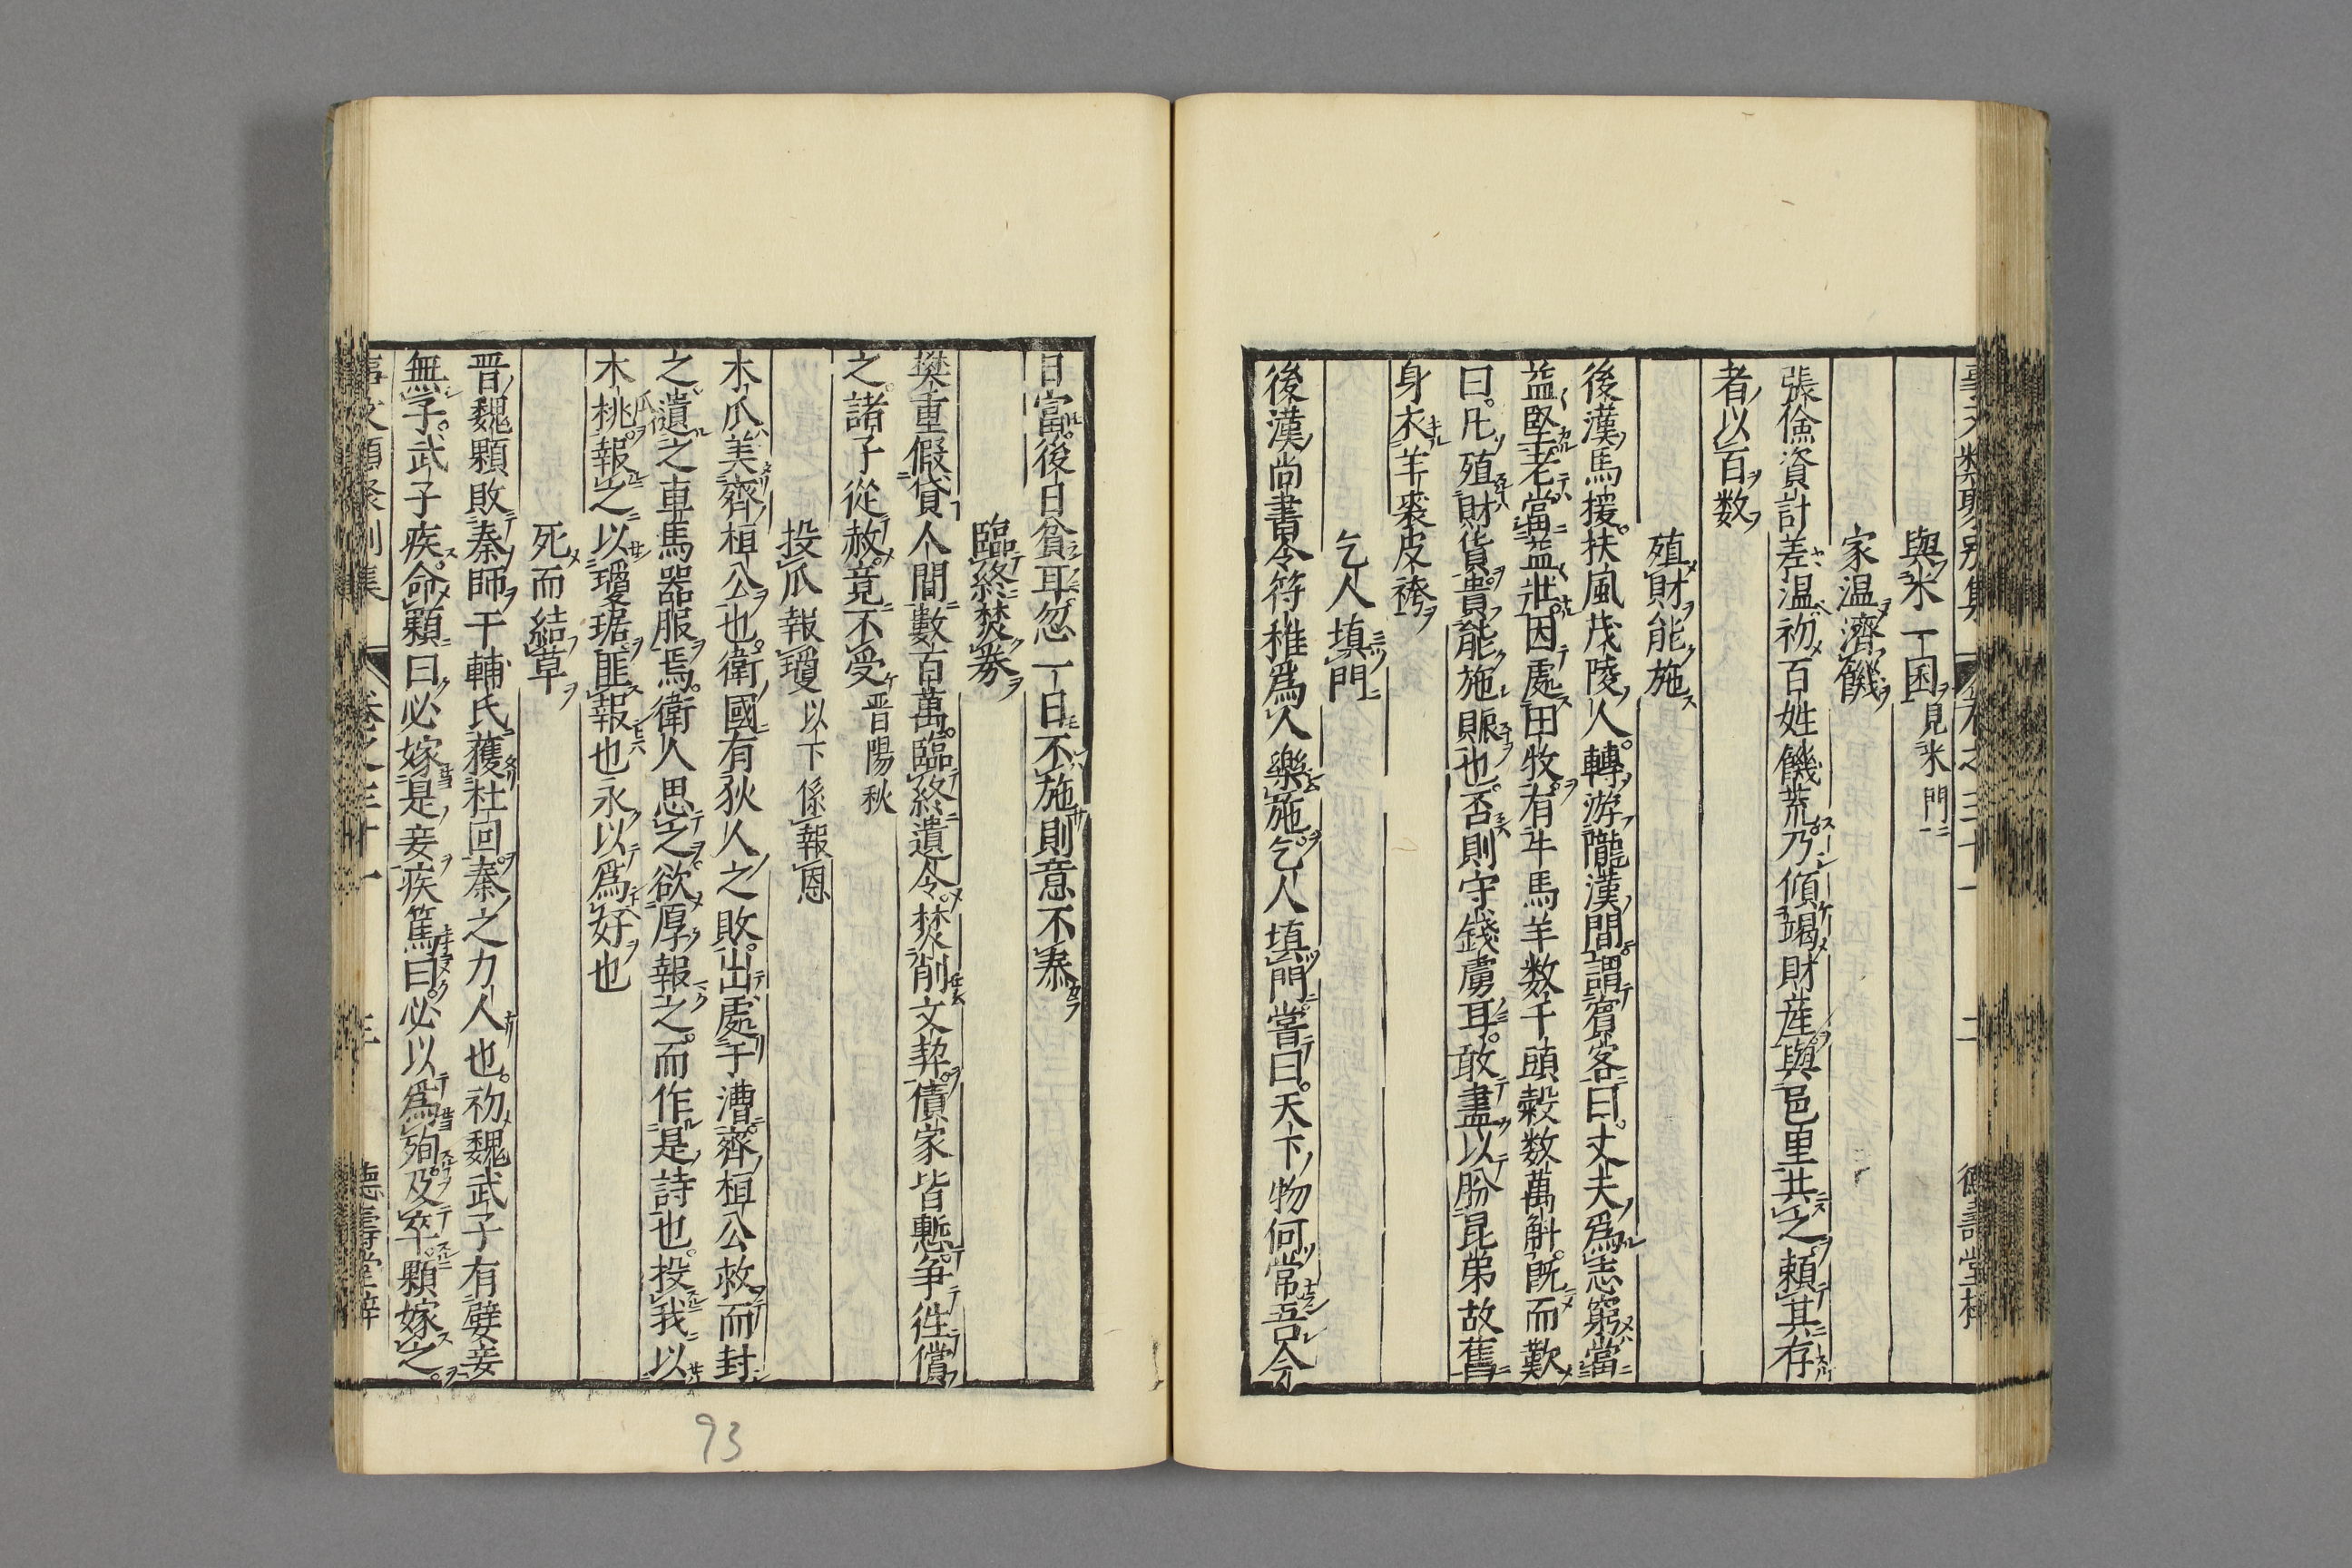 與米一囷見米門
家温濟饑
張儉資計差温初百姓饑荒乃傾竭財産與邑里共之頼其存
者以百数
殖財能施
後漢馬援扶風茂陵人轉游隴漢間謂賓客曰丈夫爲志窮當
益堅老當益壯因處田牧有牛馬羊数千頭糓数萬斛既而歎
曰凡殖財貨貴能施賑也否則守錢虜耳敢盡以肦昆弟故舊
身衣羊裘皮袴
乞人填門
後漢尚書令符雅爲人樂施乞人填門嘗曰天下物何常吾今
日富後日貧耳忽一日不施則意不泰
臨終焚券
樊重假貸人間數百萬臨終遺令焚削文契債家皆慙争徃償
之諸子從赦竟不受晋陽秋
投瓜報瓊以下係報恩
木瓜美齊桓公也衛國有狄人之敗出處于漕齊桓公救而封
之遺之車馬器服焉衛人思之欲厚報之而作是詩也投我以
木桃報之以瓊琚匪報也永以爲好也
死而結草
晋魏顆敗秦師于輔氏獲杜回秦之力人也初魏武子有嬖妾
無子武子疾命顆曰必嫁是妾疾篤曰必以爲殉及卒顆嫁之
事文類聚別集 卷之三十一 三 德壽堂梓